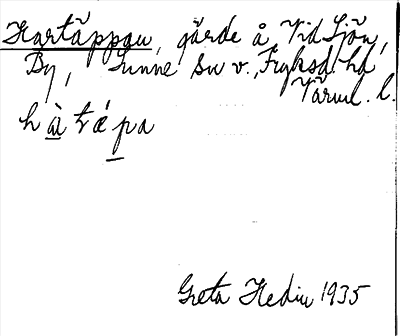 Hartäppan, gärde å Vid Sjön,
By, Sunne sn v., Fryksd. hd
Värml. l.
hàtǽpa
Greta Hedin 1935